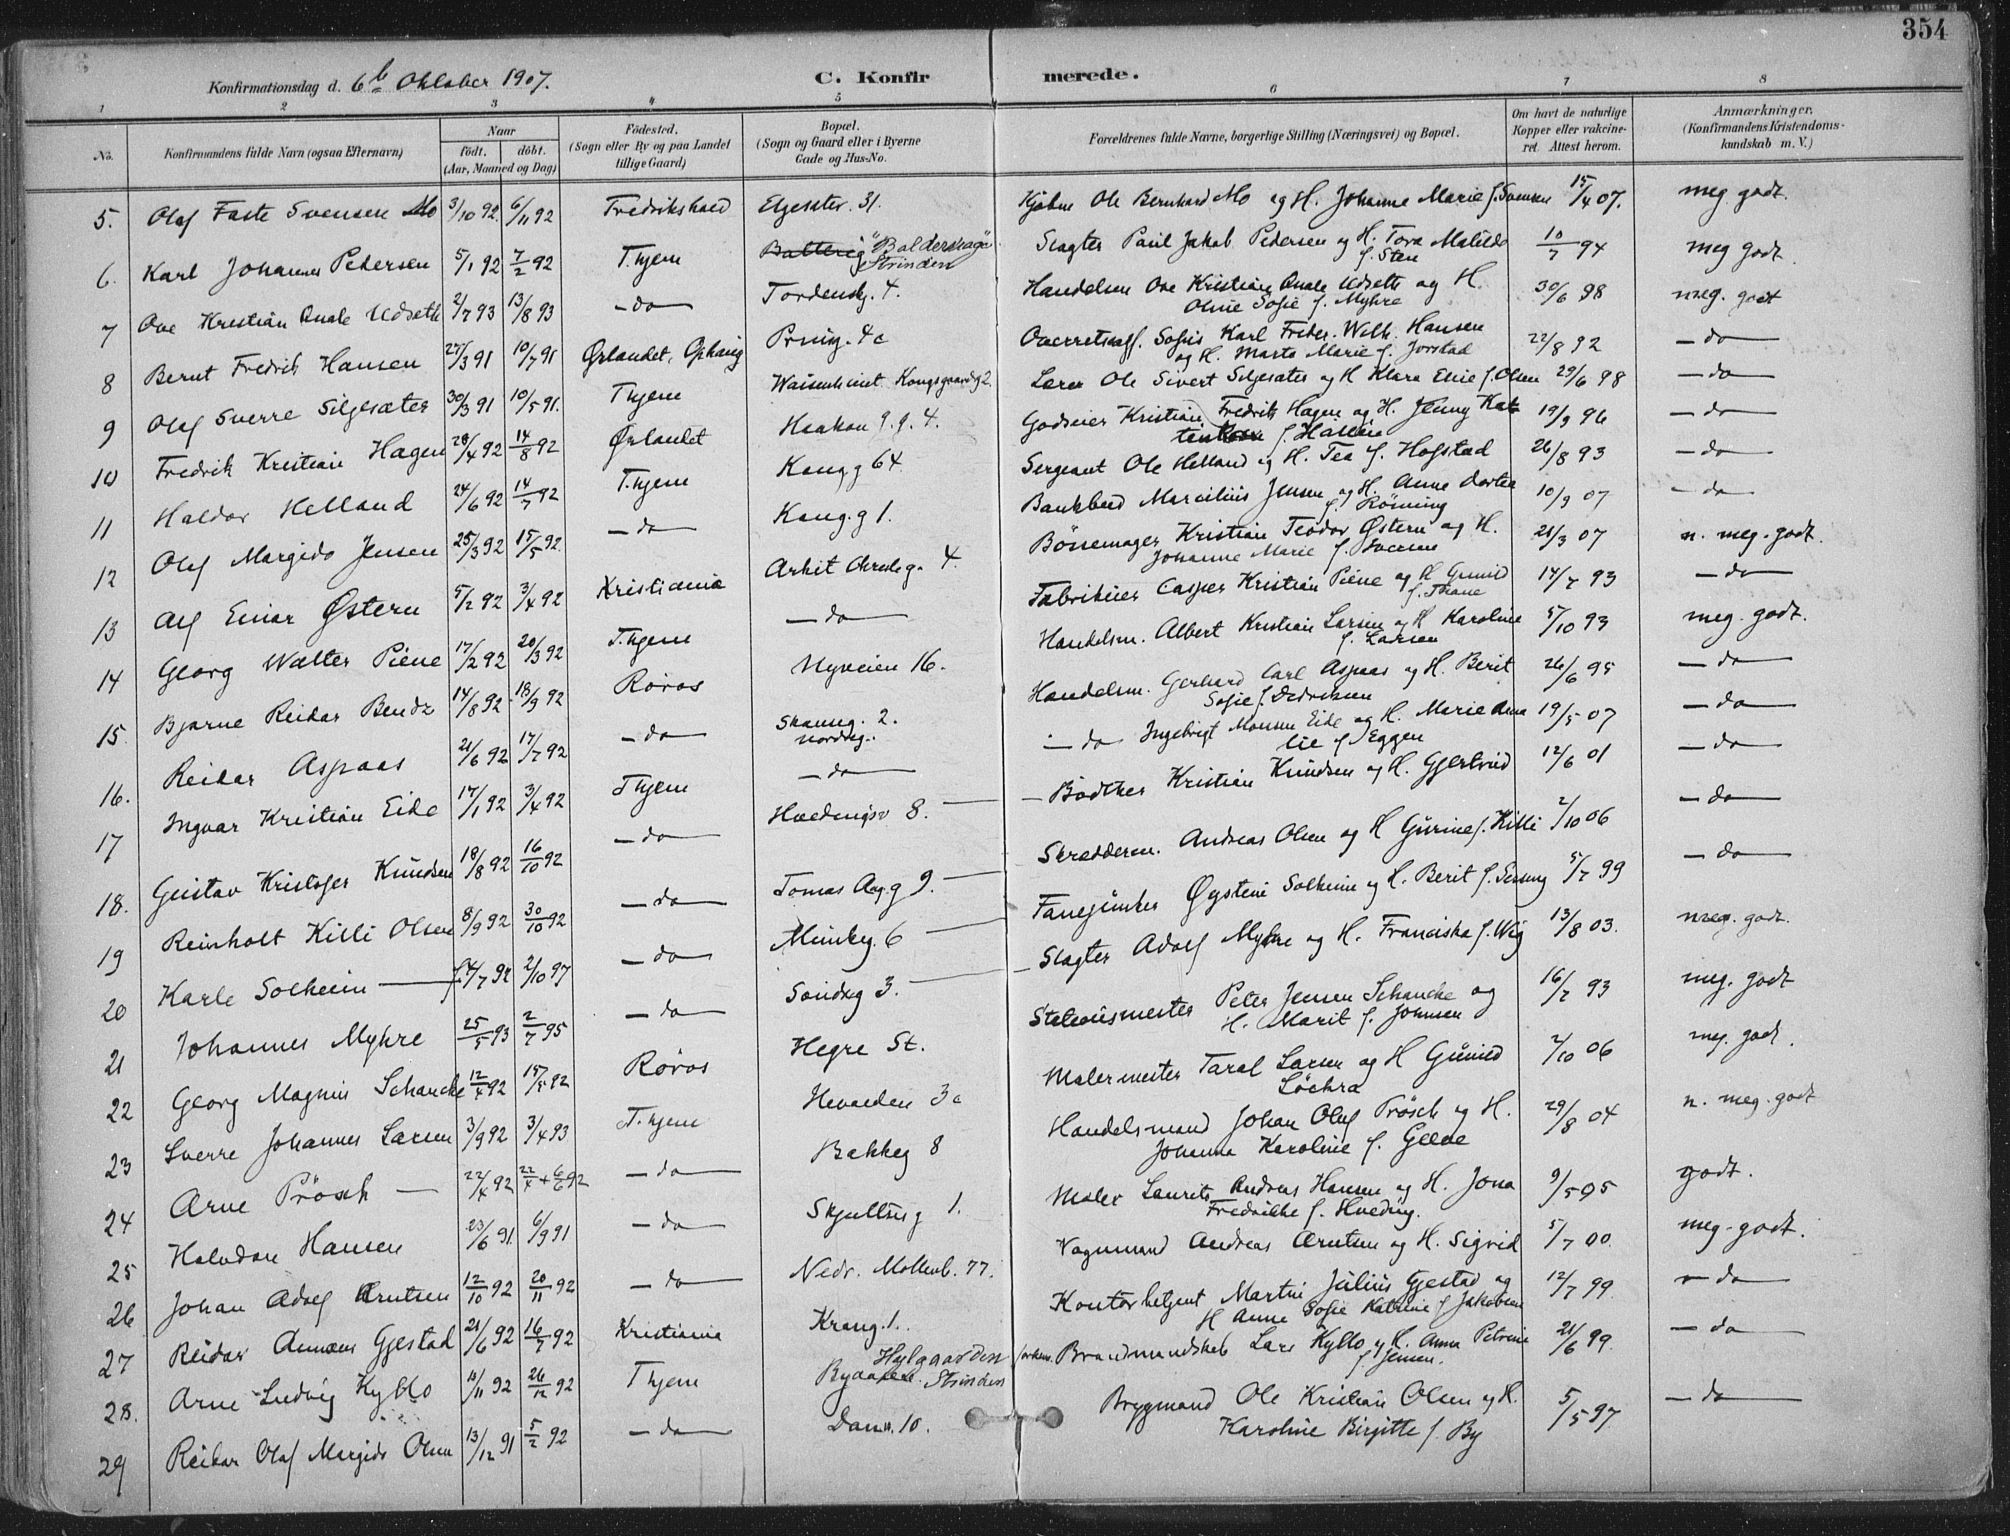 354
Konfirmationsdag d. 6te Oktober 1907.
C. Konfirmerede.
1 2 3 4 5 6 7 8
No.
Konfirmandens fulde Navn (ogsaa Efternavn)
Naar
födt. döbt.
(Aar, Maaned og Dag)
Födested.
(Sogn eller By og paa Landet
tillige Gaard)
Bopæl.
(Sogn og Gaard eller i Byerne
Gade og Hus-No.
Forældrenes fulde Navne, borgerlige Stilling (Næringsvei) og Bopæl.
Om havt de naturlige
Kopper eller vakcine-
ret. Attest herom.
Anmærkninger.
(Konfirmandens Kristendoms-
kundskab m. V.)
5. Olaf Faste Svensen Mo 3/10 92 6/11 92 Fredrikshald Elgesæter. 31. Ole Bernhard Mo og H. Johanne Marie f. Svensen 15/4 07. meg godt.
6. Karl Johannes Pedersen 5/1 92 7/2 92 T.hjem Strinden Slagter Paul Jakob Pedersen og H. Tora Matilde f. Sten 10/7 94 meg godt.
7 Ove Kristian Quale Udseth 2/7 93 13/8 93 – do – Tordenskj. 4. Handelsm Ove Kristian Quale Udseth og H. Oline Sofie f. Myhre 30/6 98 meg. godt
8 Bernt Fredrik Hansen 27/3 91 10/7 91 Ørlandet, Ophaug Prinsg. 4c Karl Freder. Wilh. Hansen og H. Marta Marie f. Jorstad 22/8 92 – do –
9 Olaf Sverre Silgesæter 30/3 91 10/5 91. Thjem Waisenhuset Kongsgaardg 2. Lærer Ole Sivert Silgesæter og H Klara Elise f. Olsen 29/6 98 – do –
10 Fredrik Kristian Hagen 28/4 92 14/8 92 Ørlandet Haakon 7. g. 4. Godseier Kristian Fredrik Hagen og H. Jenny f. 19/9 96 – do –
11 Haldor Helland 24/6 92 14/7 92 T.hjem Kongg 64 Sergeant Ole Helland og H. Tea f. Hofstad 26/8 93 – do –
12 Olaf Margido Jensen 25/3 92 15/5 92. – do – Kong. g 1. Bankbud Marcilius Jensen og H. Anne Dortea f. Rönning 10/9 07 – do
13 Alf Einar Østern 5/2 92 3/4 92 Kristiania Arkit Christieg. 4. Bössemager Kristian Teodor Østern og H. Johanne Marie f. Iversen 21/3 07 n. meg. godt.
14 Georg Walter Piene 17/2 92 20/3 92 T.hjem – do – Fabrikeier Casper Kristian Piene og H Gunild f. Thane 14/7 93 – do
15. Bjarne Reidar Bendz 14/8 92 18/9 92 Röros Nyveien 16. Handelsm. Albert Kristian Larsen og H Karoline f. Larsen 5/10 93 meg. godt.
16. Reidar Aspaas 21/6 92 17/7 92 – do – 2. Nordreg. Handelsm. Gerhard Carl Aspaas og H. Berit Sofie f. Dedrichsen 26/6 95 – do
17 Ingvar Kristian Eide 17/1 92 3/4 92 Thjem – do – – do Ingebrigt Monsen Eide og H. Marie Amalie f. Eggen 19/5 07 – do –
18. Gustav Kristofer Knudsen 18/8 92 16/10 92 – do – 8. Bödtker Kristian Knudsen og H. Gjertrud 12/6 01 – do –
19 Reinholt Killi Olsen 8/9 92 30/10 92 – do – Tomas Ang. g 9. Skrædderm. Andreas Olsen og H Gurine f. Killi 2/10 06 – do –
20 Karle Solheim 2/10 97 – do – Munkeg. 6 Fanejunker Øystein Solheim og H. Berit f. 5/7 99 – do –
21 Johannes Myhre 25/5 93 2/7 95 – do – Sandg 3. Slagter Adolf Myhre og H. Franciska f. Wig 13/8 03. meg. godt.
22 Georg Magnus Schancke 12/4 92 15/5 92 Röros Hegre St. Stationsmester Peter Jensen Schancke og H. Marit f. Johnsen 16/7 93 meg. godt
23 Sverre Johannes Larsen 3/9 92 3/4 93 T.hjem 3c Malermester Taral Larsen og H Gunild Löchra 2/10 06 meg. godt.
24 Arne Prösch – 22/4 92 22/4 + 6/6 92 – do – Bakkeg 8 Handelsmand Johan Olaf Prösch og H. Johanna Karoline f. 29/8 04 n. meg. godt
25 Halvdan Hansen 23/6 91. 6/9 91 – do – 1. Maler Laurits Andreas Hansen og H. Jona Fredrikke f. Hveding. 9/5 05 godt.
26 Johan Adolf Arntsen 12/10 92 20/11 92 – do – Nedr. Mollenb. 77. Vognmand Andreas Arntsen og H. Sigrid 5/7 00 meg. godt.
27 Reidar Gjestad 21/6 92 16/7 92 Kristiania Krang. 1. Kontorbetjent Martin Julius Gjestad og H Anne Sofie Katrine f Jakobsen 12/7 99. – do –
28. Arne Ludvig Kyllo 11/11 92 26/12 92 Thjem Strinden Lars Kyllo og H. Anna Petrine f. Jensen. 21/6 99. – do
29 Reidar Olaf Margido Olsen 13/12 91 5/2 92 – do – 10. Bryggmand Ole Kristian Olsen og H. Karoline Birgitte f. By 5/5 97 – do –